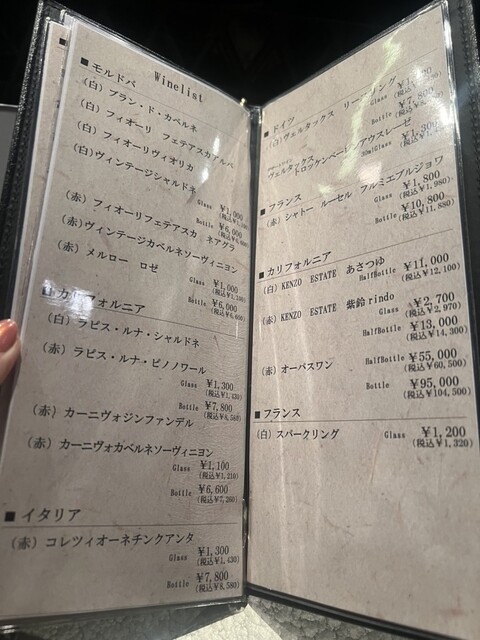 Winelist
■ モルドバ
(白) ブラン・ド・カベルネ
(白) フィオーリ フェテアスカアルバ
(白) フィオーリヴィオリカ
(白) ヴィンテージシャルドネ
Glass ¥1,000
(税込¥1,100)
Bottle ¥6,000
(税込¥6,600)
(赤) フィオーリフェテアスカ ネアグラ
(赤) ヴィンテージカベルネソーヴィニヨン
(赤) メルロー ロゼ
Glass ¥1,000
(税込¥1,100)
Bottle ¥6,000
(税込¥6,600)
■ カリフォルニア
(白) ラピス・ルナ・シャルドネ
(赤) ラピス・ルナ・ピノノワール
Glass ¥1,300
(税込¥1,430)
Bottle ¥7,800
(税込¥8,580)
(赤) カーニヴォジンファンデル
(赤) カーニヴォカベルネソーヴィニヨン
Glass ¥1,100
(税込¥1,210)
Bottle ¥6,600
(税込¥7,260)
■ イタリア
(赤) コレツィオーネチンクアンタ
Glass ¥1,300
(税込¥1,430)
Bottle ¥7,800
(税込¥8,580)
■ ドイツ
(白) ヴェルタックス リースリング
Glass
Bottle ¥7,800
ヴェルタックス
トロッケンベーレンアウスレーゼ
30ml Glass ¥1,300
■ フランス
(赤) シャトー ルーセル プルミエブルジョワ
Glass ¥1,800
(税込¥1,980)
Bottle ¥10,800
(税込¥11,880)
■ カリフォルニア
(白) KENZO ESTATE あさつゆ
HalfBottle ¥11,000
(税込¥12,100)
(赤) KENZO ESTATE 紫鈴rindo
Glass ¥2,700
(税込¥2,970)
HalfBottle ¥13,000
(税込¥14,300)
(赤) オーパスワン HalfBottle ¥55,000
(税込¥60,500)
Bottle ¥95,000
(税込¥104,500)
■ フランス
(白) スパークリング Glass ¥1,200
(税込¥1,320)